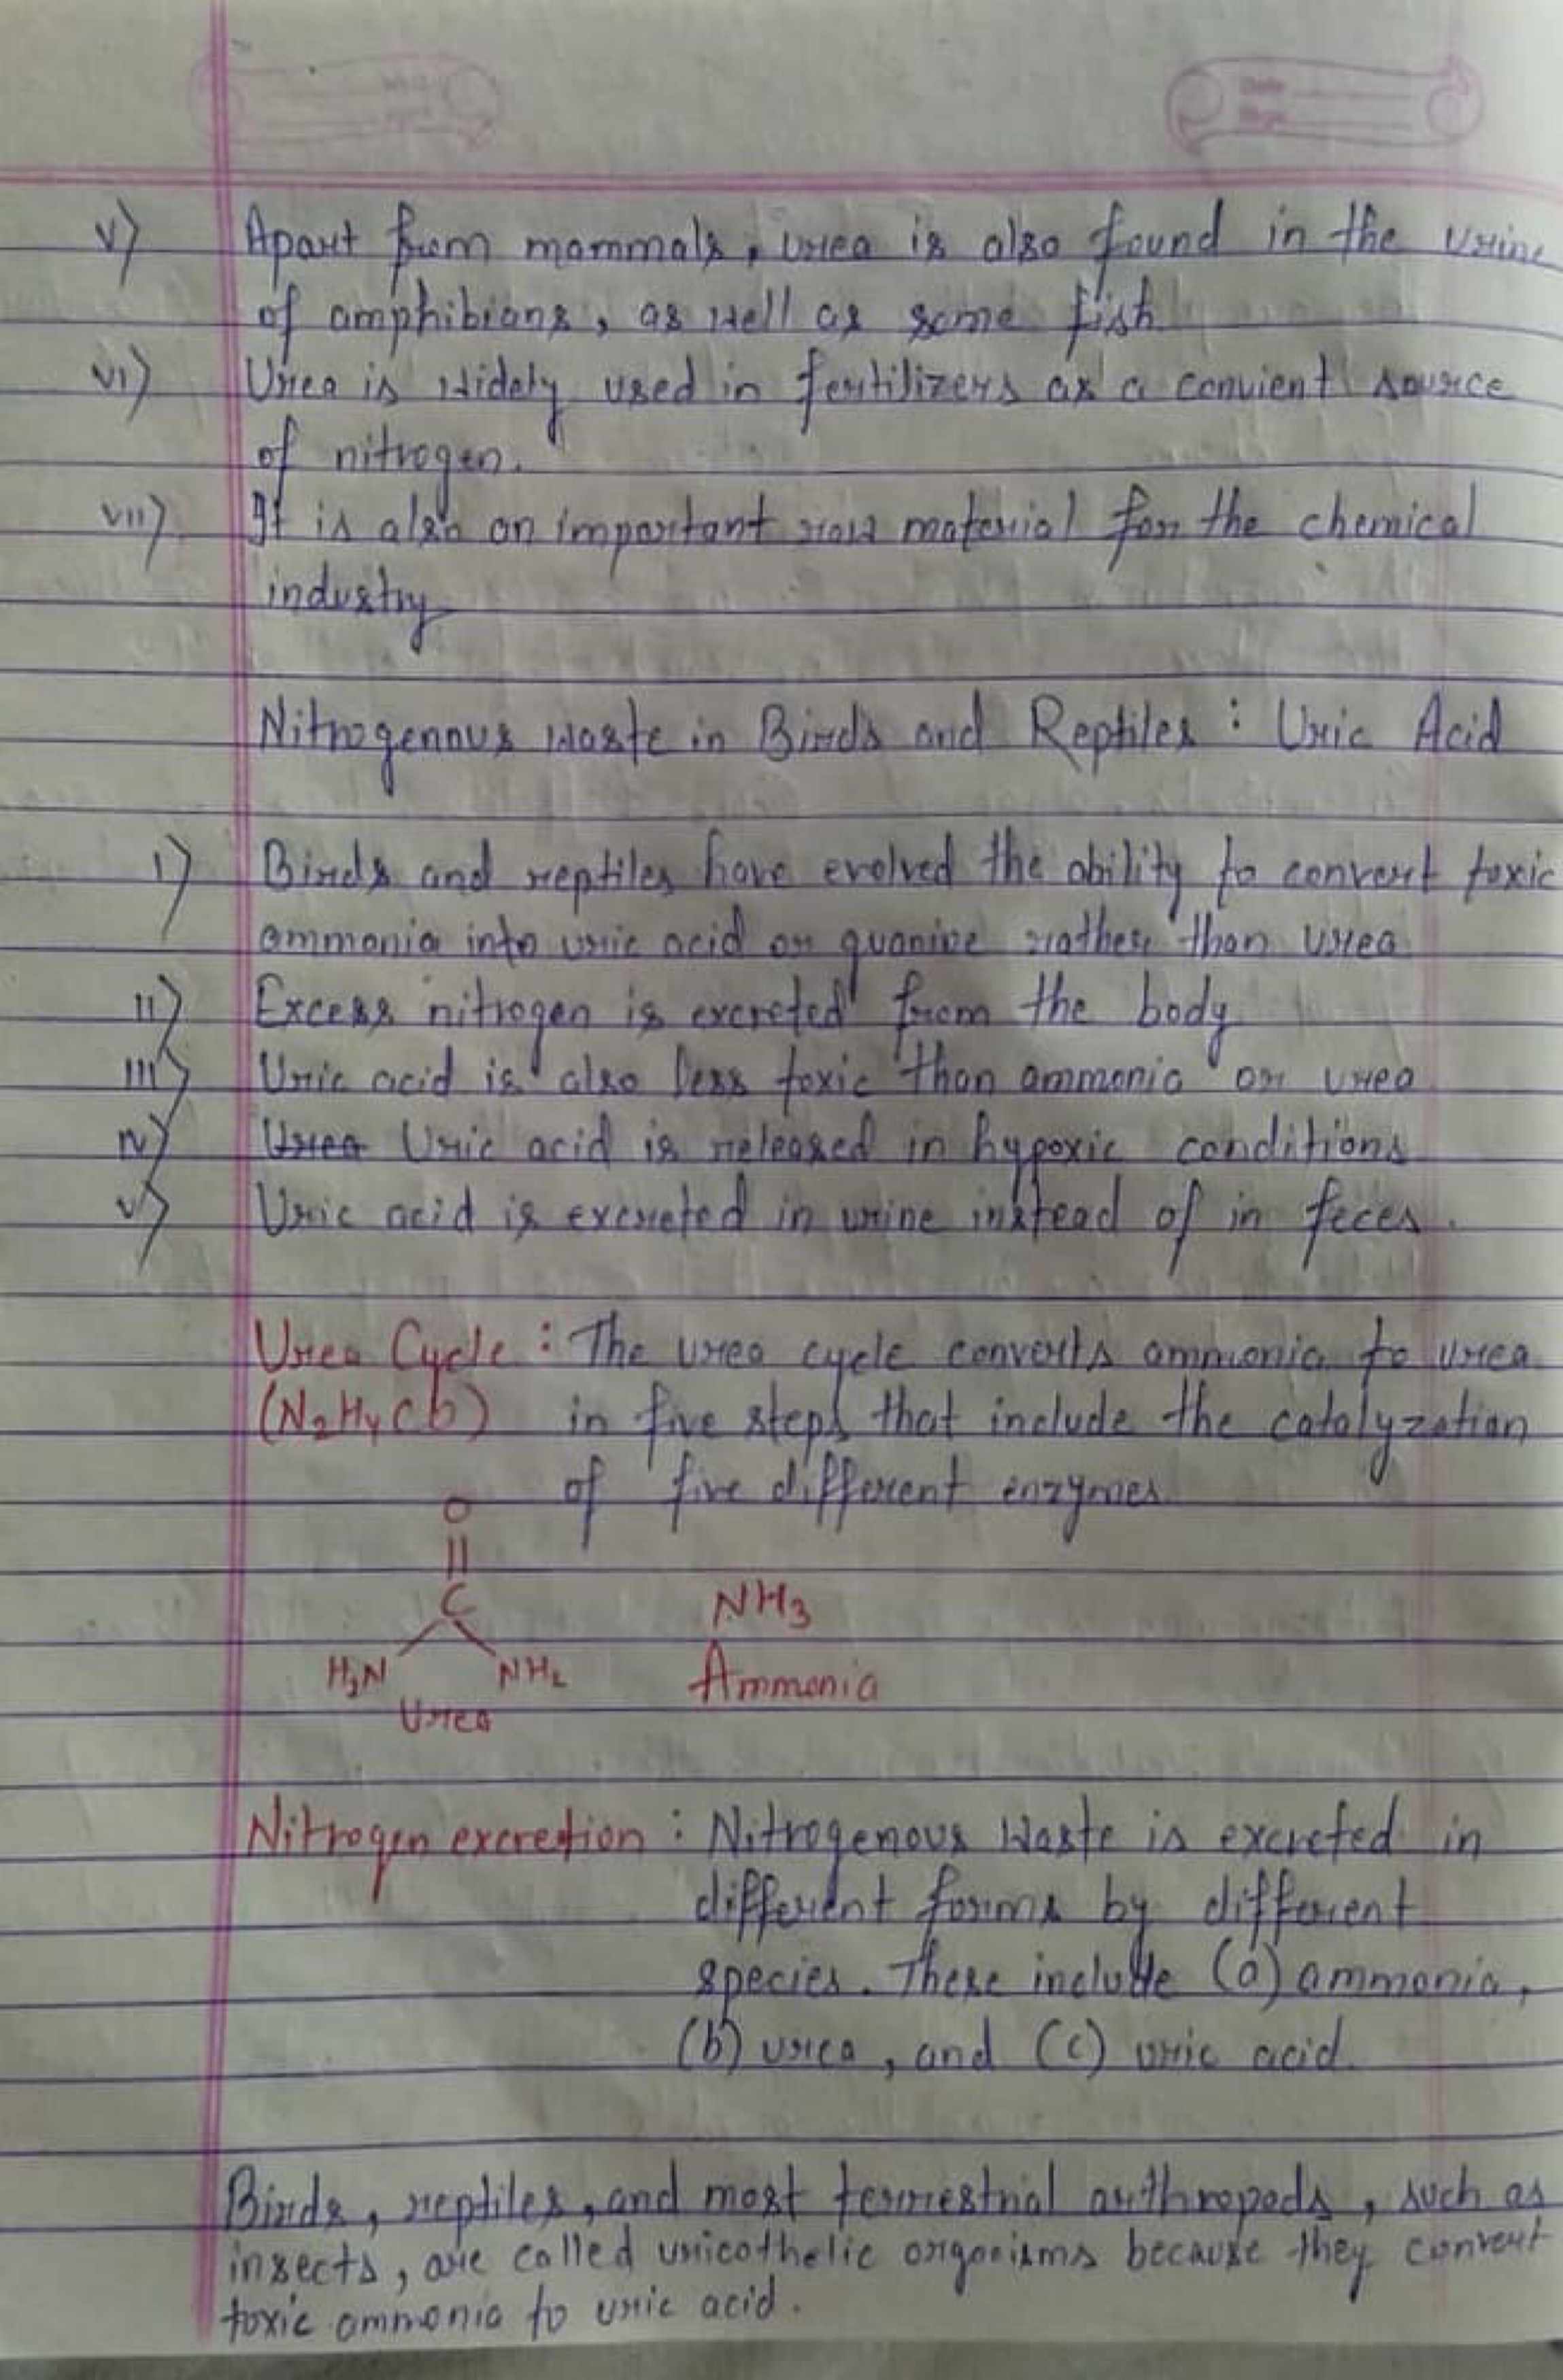 v) Apart from mammals, urea is also found in the urine
of amphibians, as well as some fish
vi) Urea is widely used in fertilizers as a convient source
of nitrogen.
vii) It is also an important raw material for the chemical
industry
Nitrogennous waste in Birds and Reptiles : Uric Acid
i) Birds and reptiles have evolved the ability to convert toxic
ammonia into uric acid or guanine rather than urea
ii) Excess nitrogen is excreted from the body
iii) Uric acid is also less toxic than ammonia or urea
iv) Urea Uric acid is released in hypoxic conditions
v) Uric acid is excreted in urine instead of in feces.
Urea Cycle : The urea cycle converts ammonia to urea
(N2H4Cb) in five steps that include the catalyzation
of five different enzymes
O
C
NH3
H2N NH2
Ammonia
Urea
Nitrogen excretion : Nitrogenous waste is excreted in
different forms by different
species. These include (a) ammonia,
(b) urea, and (c) uric acid.
Birds, reptiles, and most terrestrial arthropods, such as
insects, are called uricothelic organisms because they convert
toxic ammonia to uric acid.